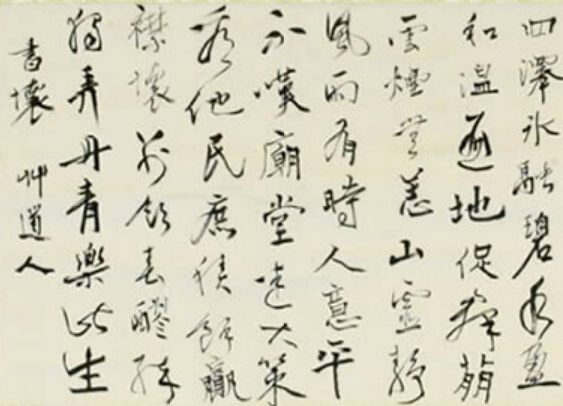 四澤氷融碧水盈
和溫遍地促萌
雲煙無恙山靈靜
風雨有時人意平
不嘆廟堂大策
他民庶積餘贏
襟懷飲春醪醉
獨弄丹青樂此生
書懷 艸道人